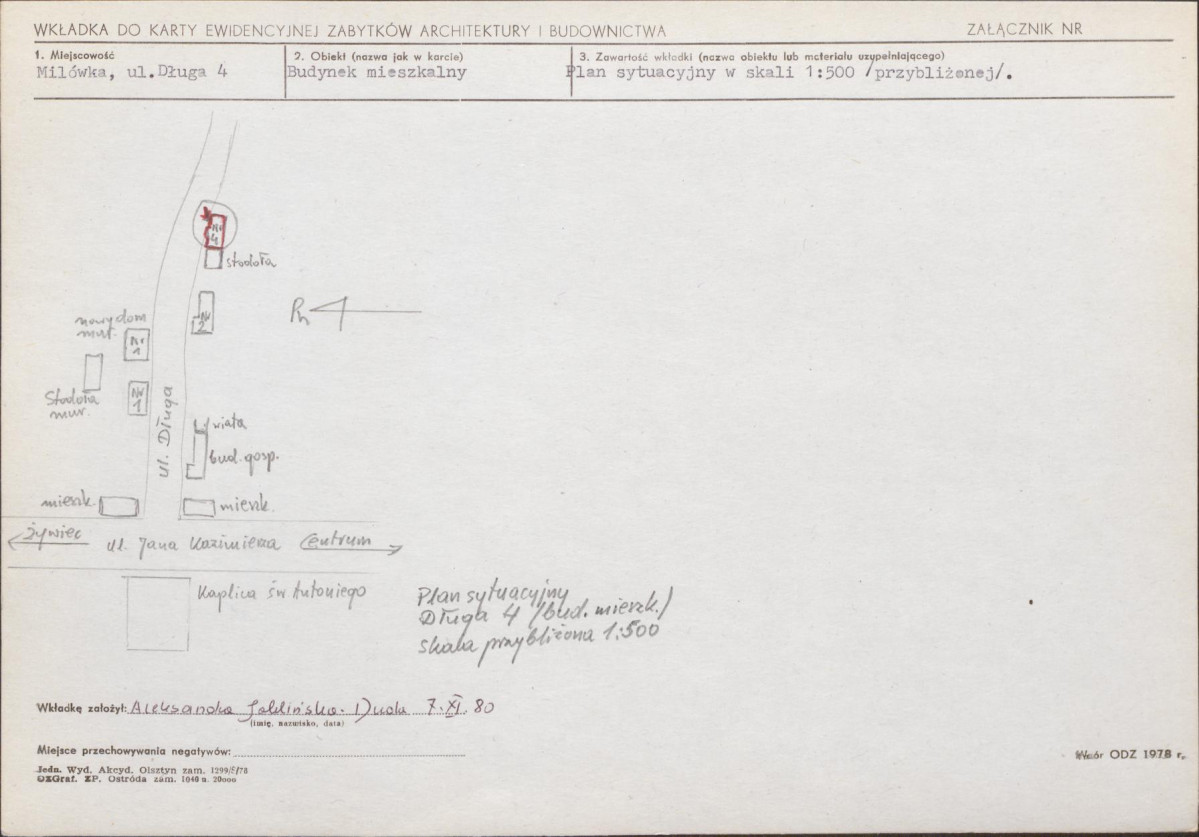 WKŁADKA DO KARTY EWIDENCYJNEJ ZABYTKÓW ARCHITEKTURY I BUDOWNICTWA
ZAŁĄCZNIK NR
1. Miejscowość
Milówka, ul. Długa 4
2. Obiekt (nazwa jak w karcie)
Budynek mieszkalny
3. Zawartość wkładki (nazwa obiektu lub materiału uzupełniającego)
Plan sytuacyjny w skali 1:500 /przybliżonej/.
Nr
4
stodoła
Nr
2
Pn
nowy dom
mur.
Nr
1
Stodoła
mur.
Nr
1
ul. Długa
wiata
bud. gosp.
mieszk.
mieszk.
Żywiec
ul. Jana Kazimierza
Centrum
Kaplica św Antoniego
Plan sytuacyjny
Długa 4 (bud. mieszk.)
skala przybliżona 1:500
Wkładkę założył: Aleksandra Duda 7. XI. 80
(imię, nazwisko, data)
Miejsce przechowywania negatywów:
Jedn. Wyd. Akcyd. Olsztyn zam. 1299/S/78
OZGraf. ZP. Ostróda zam. 1040 n. 20000
Wzór ODZ 1978 r.